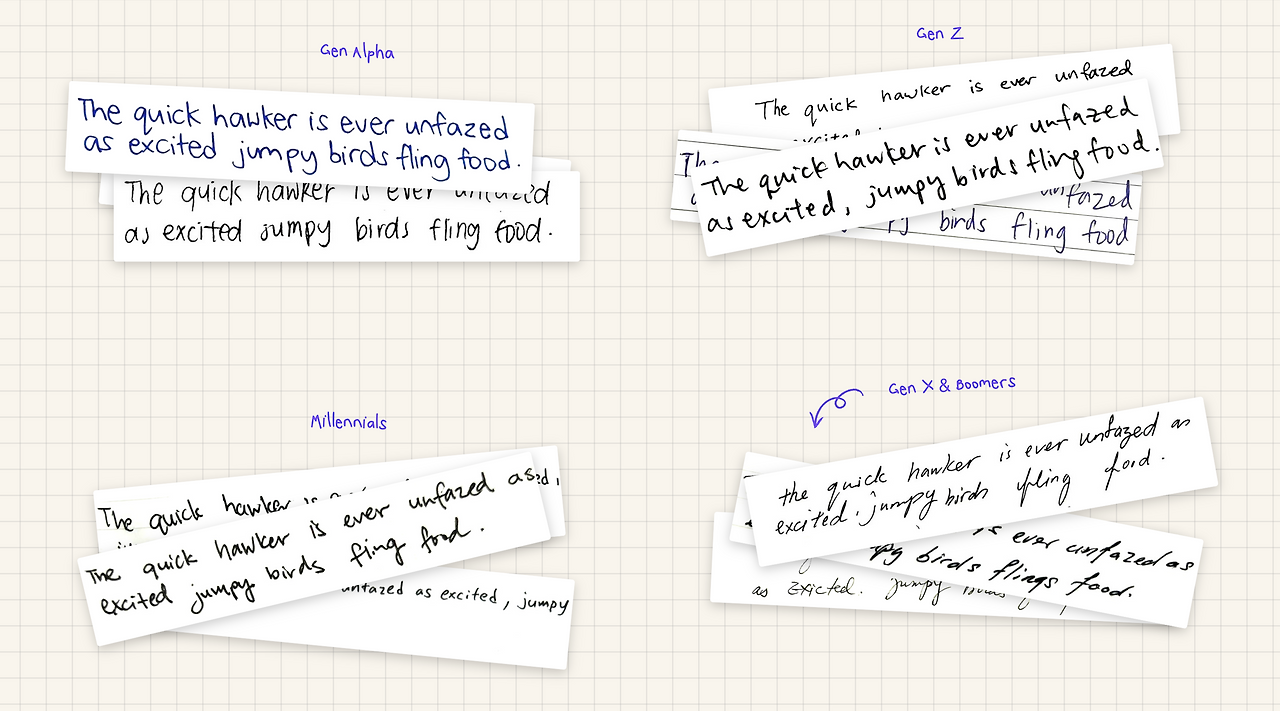 Gen Alpha
The quick hawker is ever unfazed
as excited jumpy birds fling food.
The quick hawker is ever unfazed
as excited jumpy birds fling food.
Gen Z
The quick hawker is ever unfazed
excited
The
The quick hawker is ever unfazed
as excited, jumpy birds fling food.
unfazed
birds fling food
Millennials
The quick hawker is
The quick hawker is ever unfazed as
excited jumpy birds fling food.
unfazed as excited, jumpy
Gen X & Boomers
the quick hawker is ever unfazed as
excited. jumpy birds fling food.
is ever unfazed as
birds flings food.
as exicted. jumpy